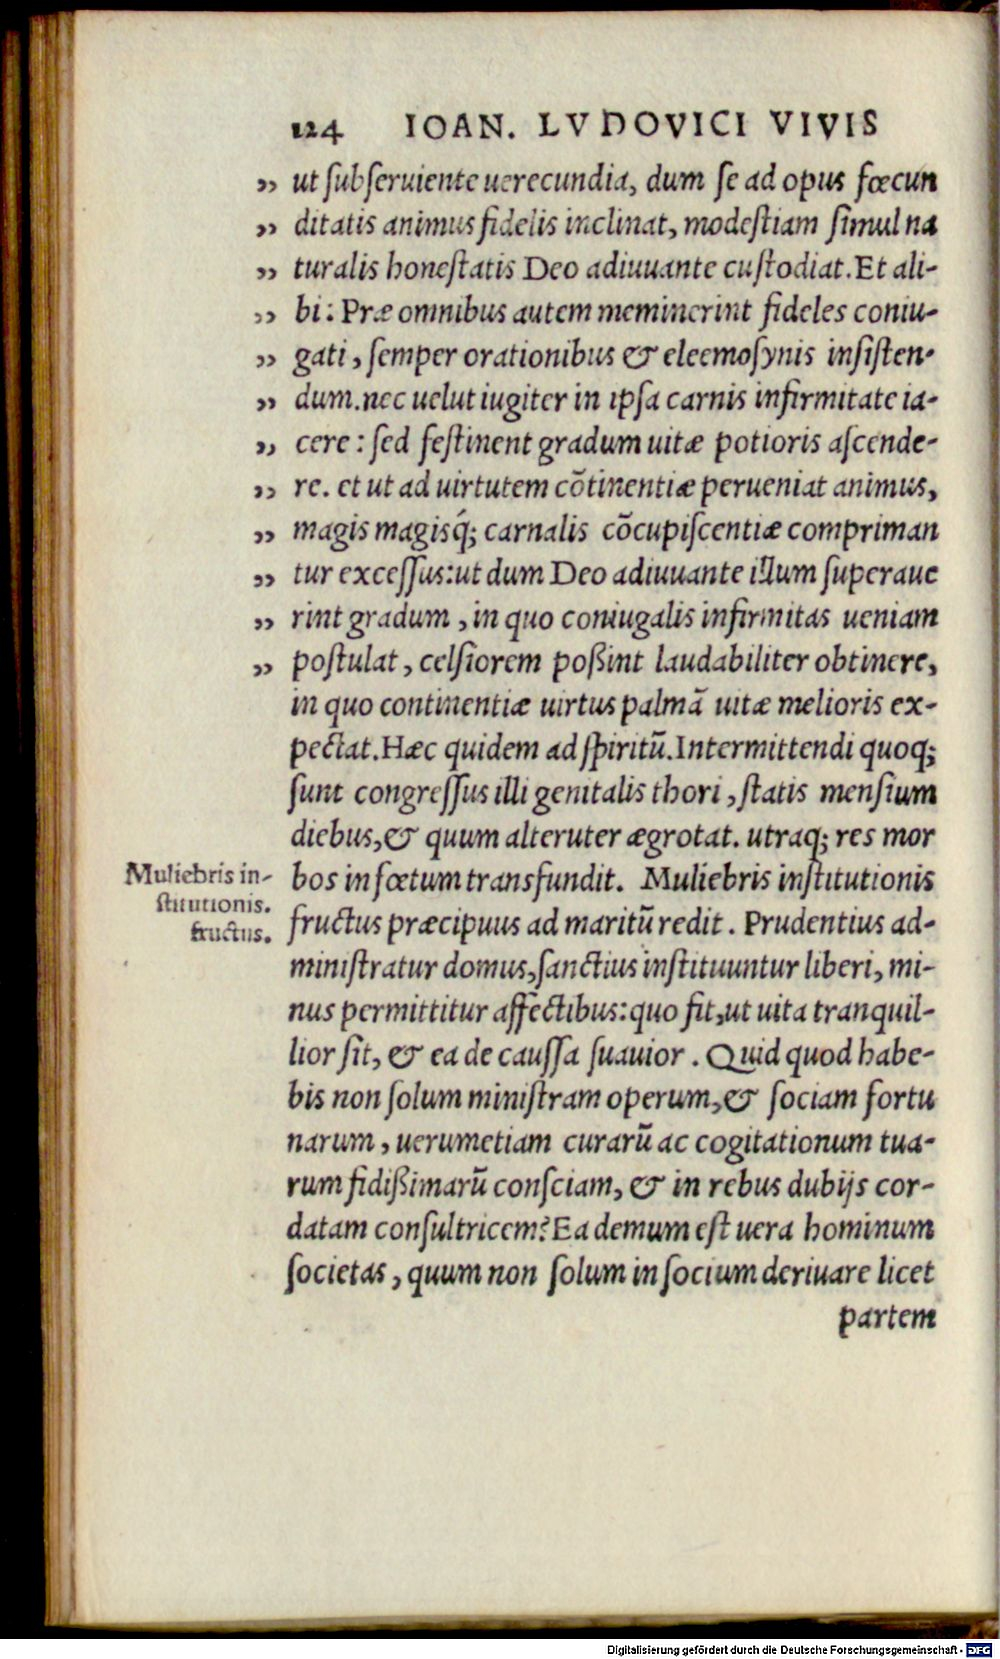 124 IOAN. LVDOVICI VIVIS
„ ut ſubſeruiente uerecundia, dum ſe ad opus fœcun
„ ditatis animus fidelis inclinat, modeſtiam ſimul na
„ turalis honeſtatis Deo adiuuante cuſtodiat. Et ali-
„ bi: Præ omnibus autem meminerint fideles coniu-
„ gati, ſemper orationibus & eleemoſynis inſiſten-
„ dum. nec uelut iugiter in ipſa carnis infirmitate ia-
„ cere: ſed feſtinent gradum uitæ potioris aſcende-
„ re. et ut ad uirtutem cōtinentiæ perueniat animus,
„ magis magisq́; carnalis cōcupiſcentiæ compriman
„ tur exceſſus: ut dum Deo adiuuante illum ſuperaue
„ rint gradum, in quo coniugalis infirmitas ueniam
„ poſtulat, celſiorem poßint laudabiliter obtinere,
in quo continentiæ uirtus palmā uitæ melioris ex-
pectat. Hæc quidem ad ſpiritū. Intermittendi quoq;
ſunt congreſſus illi genitalis thori, ſtatis menſium
diebus, & quum alteruter ægrotat. utraq; res mor
bos in fœtum transfundit. Muliebris inſtitutionis
Muliebris in-
ſtitutionis.
fructus.
fructus præcipuus ad maritū redit. Prudentius ad-
miniſtratur domus, ſanctius inſtituuntur liberi, mi-
nus permittitur affectibus: quo fit, ut uita tranquil-
lior ſit, & ea de cauſſa ſuauior. Quid quod habe-
bis non ſolum miniſtram operum, & ſociam fortu
narum, uerumetiam curarū ac cogitationum tua-
rum fidißimarū conſciam, & in rebus dubijs cor-
datam conſultricem? Ea demum eſt uera hominum
ſocietas, quum non ſolum in ſocium deriuare licet
partem
Digitalisierung gefördert durch die Deutsche Forschungsgemeinschaft - DFG